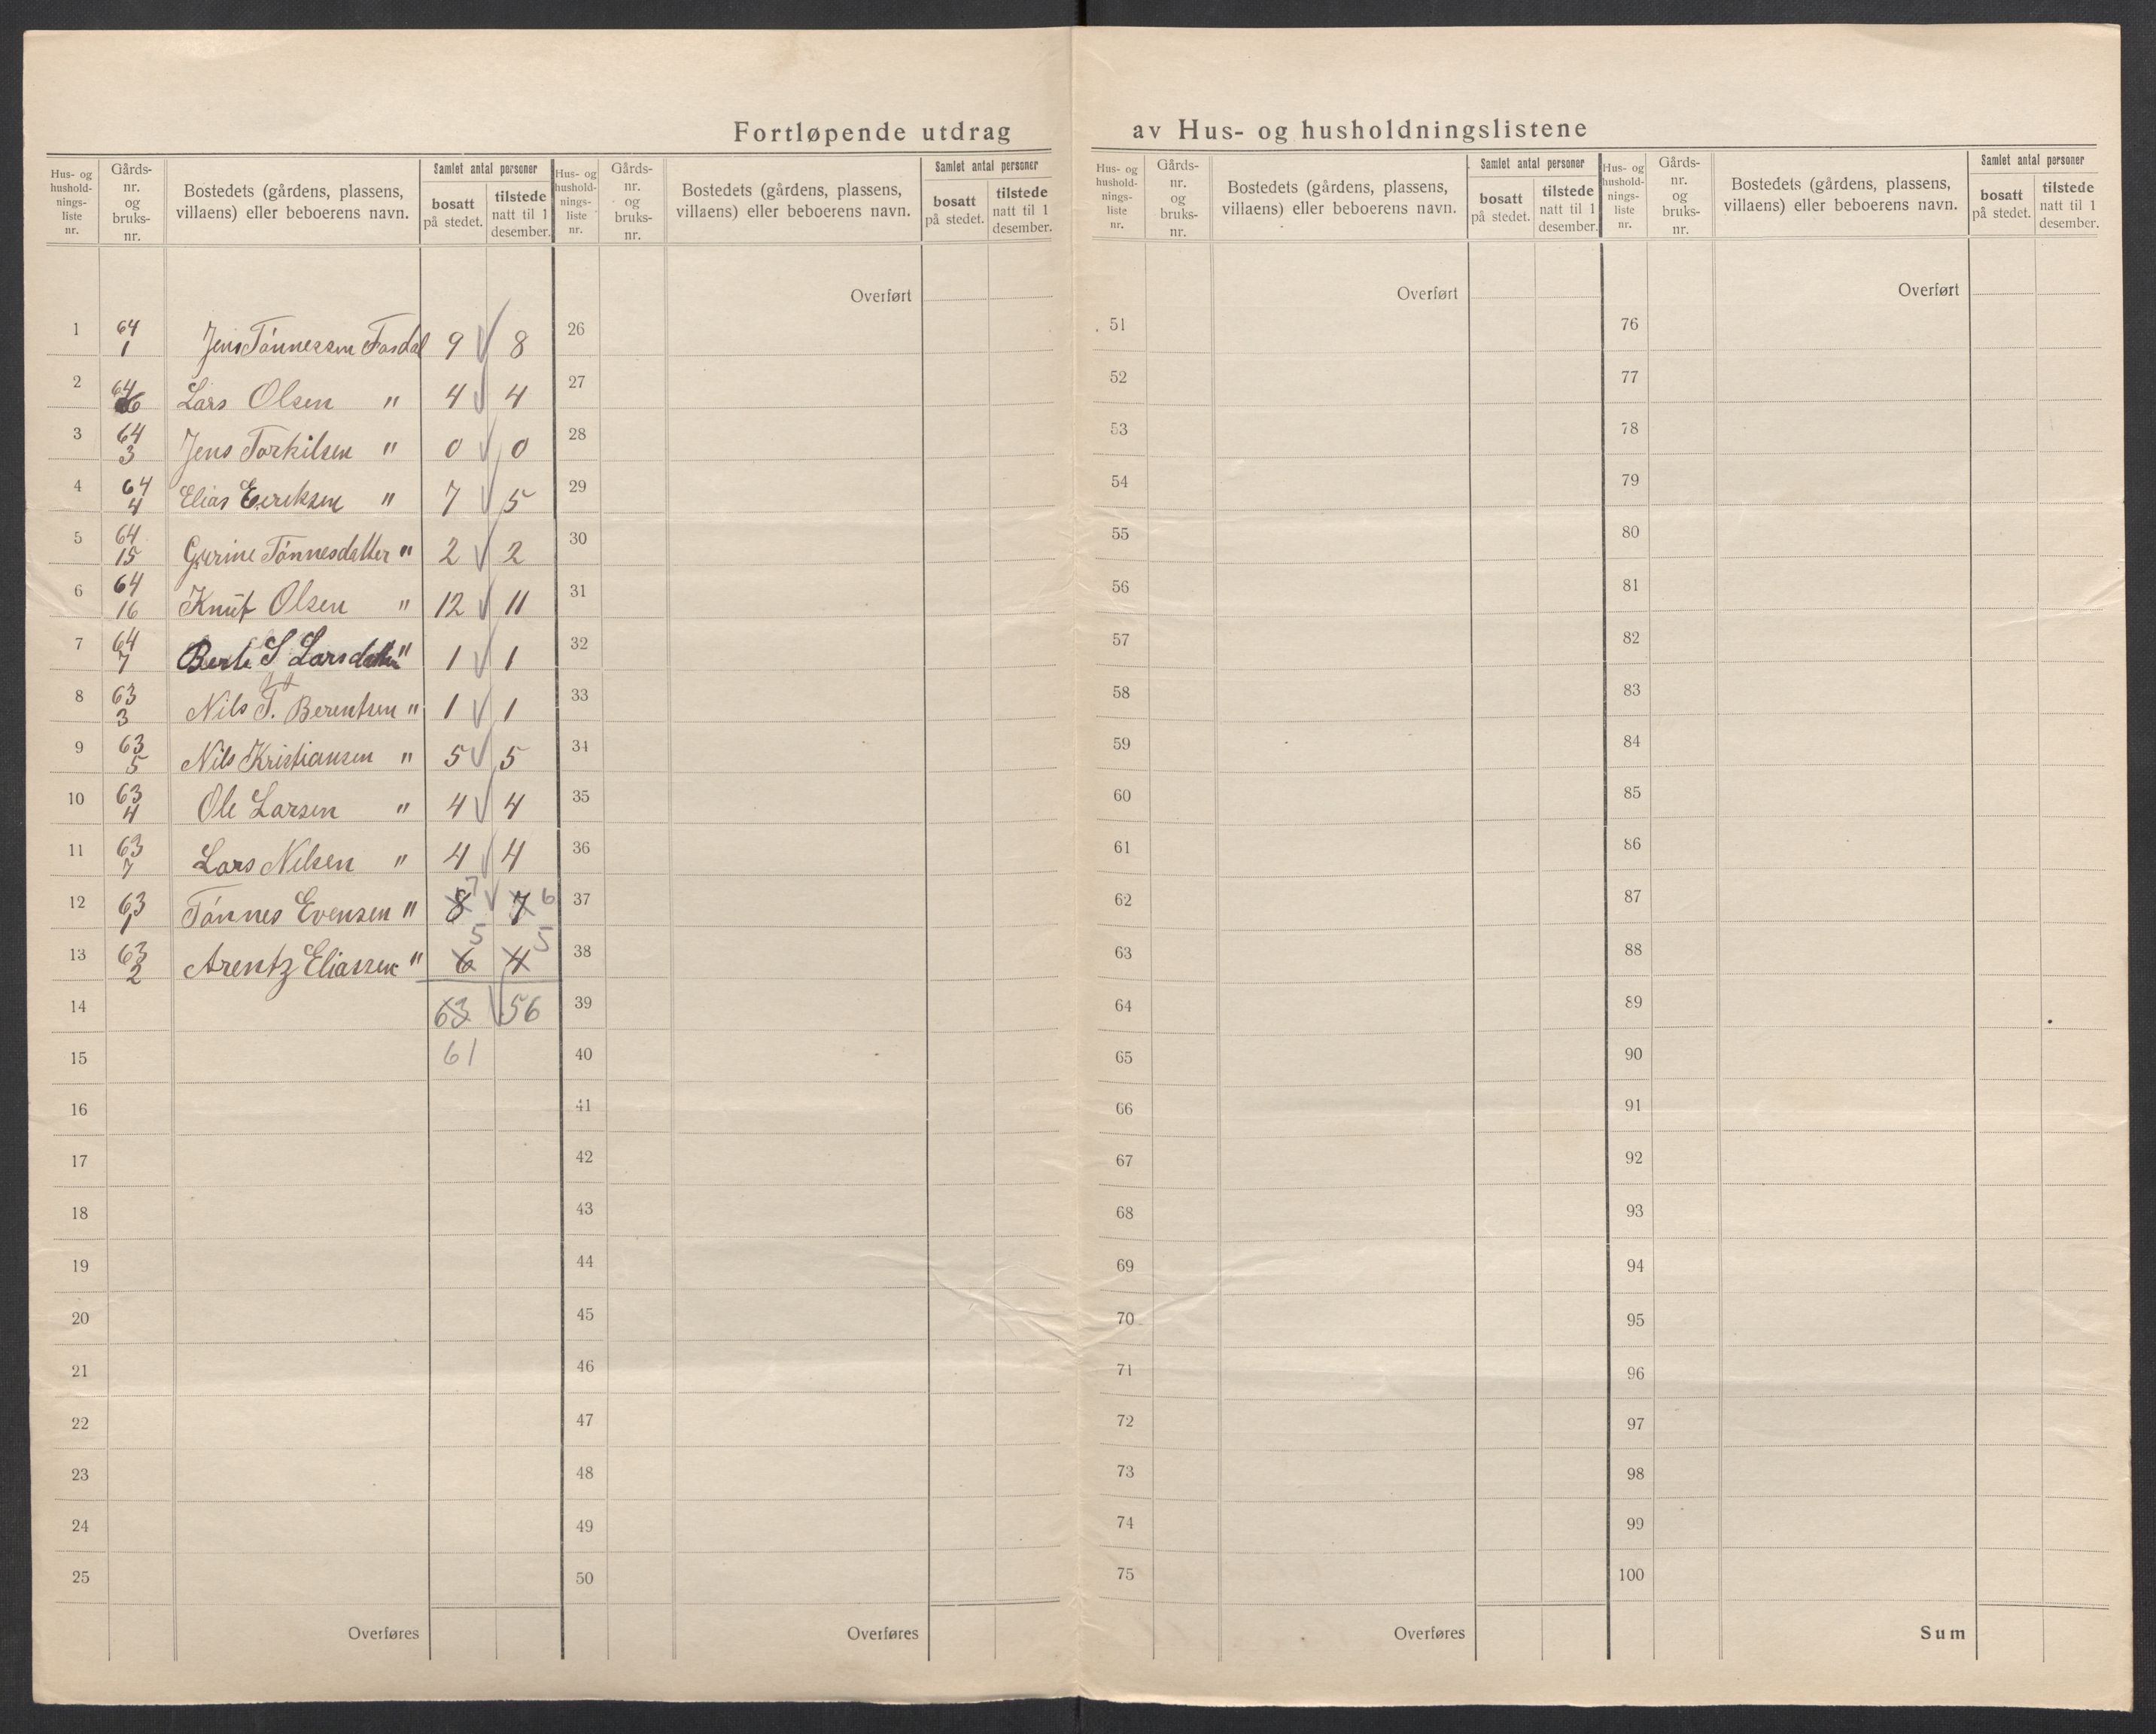 Fortløpende utdrag av Hus- og husholdningslistene
Hus- og hushold-nings-liste nr. Gårds-nr. og bruks-nr. Bostedets (gårdens, plassens, villaens) eller beboerens navn. Samlet antal personer bosatt på stedet. tilstede natt til 1 desember.
Hus- og hushold-nings-liste nr. Gårds-nr. og bruks-nr. Bostedets (gårdens, plassens, villaens) eller beboerens navn. Samlet antal personer bosatt på stedet. tilstede natt til 1 desember.
Hus- og hushold-nings-liste nr. Gårds-nr. og bruks-nr. Bostedets (gårdens, plassens, villaens) eller beboerens navn. Samlet antal personer bosatt på stedet. tilstede natt til 1 desember.
Hus- og hushold-nings-liste nr. Gårds-nr. og bruks-nr. Bostedets (gårdens, plassens, villaens) eller beboerens navn. Samlet antal personer bosatt på stedet. tilstede natt til 1 desember.
Overført Overført Overført
1 64/1 Jens Tónnessen Fosdal 9 8 26 51 76
2 64/6 Lars Olsen " 4 4 27 52 77
3 64/3 Jens Torkilsen " 0 0 28 53 78
4 64/4 Elias Eeriksen " 7 5 29 54 79
5 64/15 Gurine Tónnesdatter " 2 2 30 55 80
6 64/16 Knut Olsen " 12 11 31 56 81
7 64/7 Berte S Larsdatter " 1 1 32 57 82
8 63/3 Nils T. Berentsen " 1 1 33 58 83
9 63/5 Nils Kristiansen " 5 5 34 59 84
10 63/4 Ole Larsen " 4 4 35 60 85
11 63/7 Lars Nilsen " 4 4 36 61 86
12 63/1 Tónnes Evensen " 8 7 7 6 37 62 87
13 63/2 Arentz Eliassen " 6 5 4 5 38 63 88
14 63 56 39 64 89
15 61 40 65 90
16 41 66 91
17 42 67 92
18 43 68 93
19 44 69 94
20 45 70 95
21 46 71 96
22 47 72 97
23 48 73 98
24 49 74 99
25 50 75 100
Overføres Overføres Overføres Sum